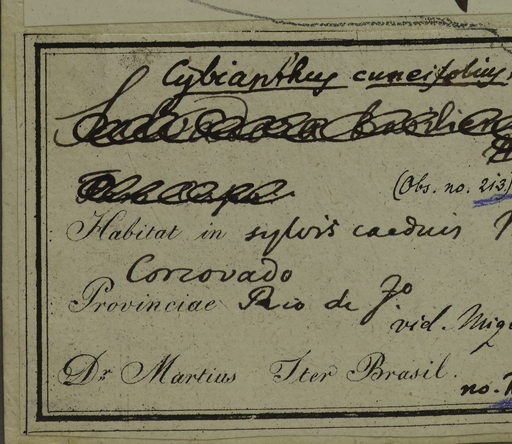 Cybianthus cuneifolius
(Obs. no. 213)
Habitat in sylvis caeduis
Corcovado
Provinciae Rio de Jo
vid. Miq
Dr Martius Iter Brasil.
no.